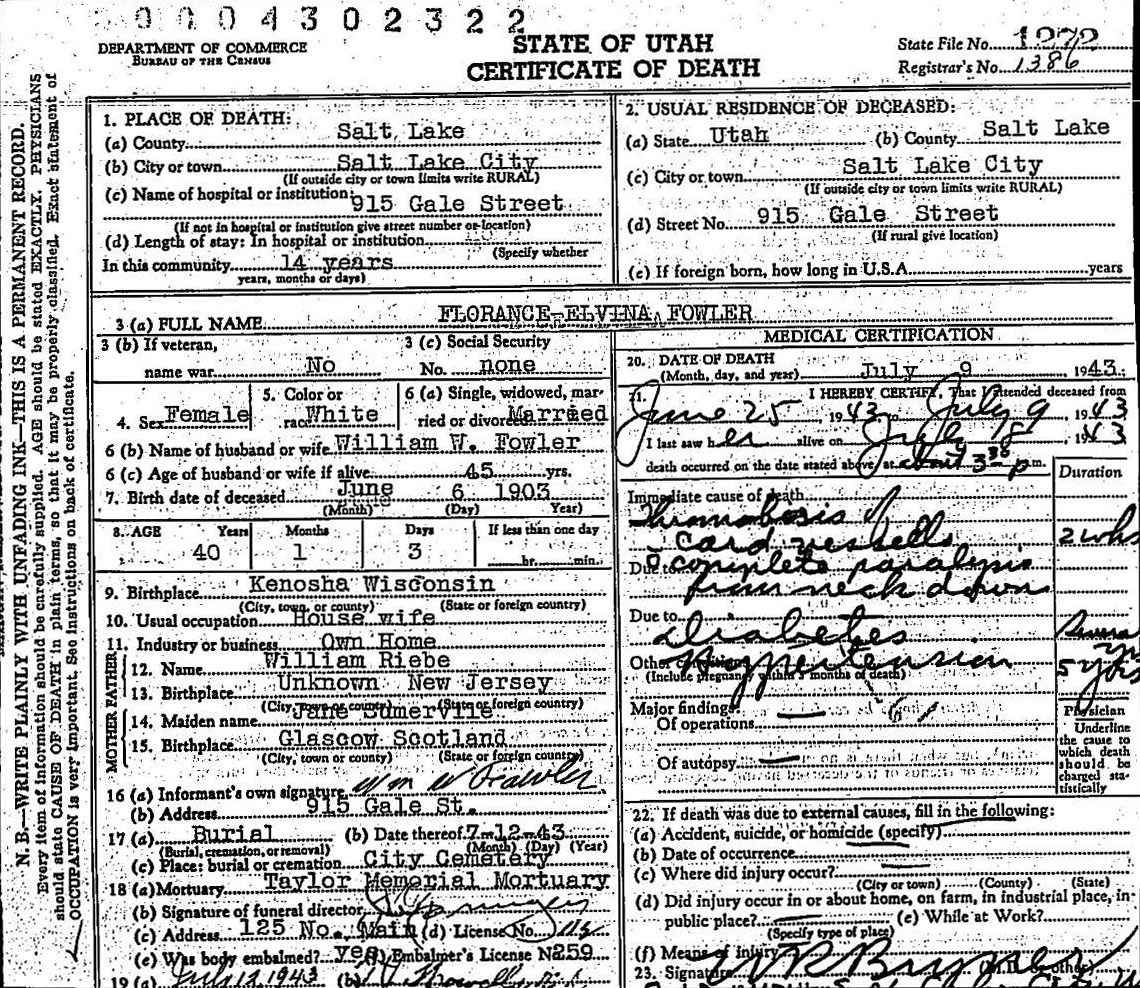 0004302322
DEPARTMENT OF COMMERCE
BUREAU OF THE CENSUS
STATE OF UTAH
CERTIFICATE OF DEATH
State File No.
Registrar's No. 1386
N. B.—WRITE PLAINLY WITH UNFADING INK—THIS IS A PERMANENT RECORD.
Every item of information should be carefully supplied. AGE should be stated EXACTLY. PHYSICIANS
should state CAUSE OF DEATH in plain terms, so that it may be properly classified. Exact statement of
OCCUPATION is very important. See instructions on back of certificate.
1. PLACE OF DEATH:
(a) County Salt Lake
(b) City or town Salt Lake City
(If outside city or town limits write RURAL)
(c) Name of hospital or institution:
915 Gale Street
(If not in hospital or institution give street number or location)
(d) Length of stay: In hospital or institution
(Specify whether
In this community 14 years
years, months or days)
2. USUAL RESIDENCE OF DECEASED:
(a) State Utah (b) County Salt Lake
(c) City or town Salt Lake City
(If outside city or town limits write RURAL)
(d) Street No. 915 Gale Street
(If rural give location)
(e) If foreign born, how long in U.S.A. years
3 (a) FULL NAME FLORANCE ELVINA FOWLER
3 (b) If veteran,
name war No
3 (c) Social Security
No. none
4. Sex Female
5. Color or
race White
6 (a) Single, widowed, mar-
ried or divorced Married
6 (b) Name of husband or wife William W. Fowler
6 (c) Age of husband or wife if alive 45 yrs.
7. Birth date of deceased June 6 1903
(Month) (Day) Year)
8. AGE Years Months Days If less than one day
40 1 3 hr. min.
9. Birthplace Kenosha Wisconsin
(City, town, or county) (State or foreign country)
10. Usual occupation House wife
11. Industry or business Own Home
FATHER
12. Name William Riebe
13. Birthplace Unknown New Jersey
(City, town or county) (State or foreign country)
MOTHER
14. Maiden name Jane Sumerville
15. Birthplace Glascow Scotland
(City, town or county) (State or foreign country)
16 (a) Informant's own signature Wm W Fowler
(b) Address 915 Gale St.
17 (a) Burial (b) Date thereof 7-12-43
(Burial, cremation, or removal) (Month) (Day) (Year)
(c) Place: burial or cremation City Cemetery
18 (a) Mortuary Taylor Memorial Mortuary
(b) Signature of funeral director
(c) Address 125 No. Main (d) License No.
(e) Was body embalmed? yes (f) Embalmer's License N 259
19 (a) July 12 1943 (b)
MEDICAL CERTIFICATION
20. DATE OF DEATH
(Month, day, and year) July 9 1943
21. I HEREBY CERTIFY, That I attended deceased from
June 25 1943 to July 9, 1943
I last saw her alive on July 8 1943
death occurred on the date stated above, at about 3 30 p m.
Duration
Immediate cause of death
Thrombosis of
cord vessells 2 wks
Due to complete paralysis
from neck down
Due to
Diabetes Several yrs
Other conditions Hypertension 5 yrs
(Include pregnancy within 3 months of death)
Major findings:
Of operations —
Of autopsy —
Physician
Underline
the cause to
which death
should be
charged sta-
tistically
22. If death was due to external causes, fill in the following:
(a) Accident, suicide, or homicide (specify)
(b) Date of occurrence
(c) Where did injury occur?
(City or town) (County) (State)
(d) Did injury occur in or about home, on farm, in industrial place, in
public place? (e) While at Work?
(Specify type of place)
(f) Means of injury
23. Signature